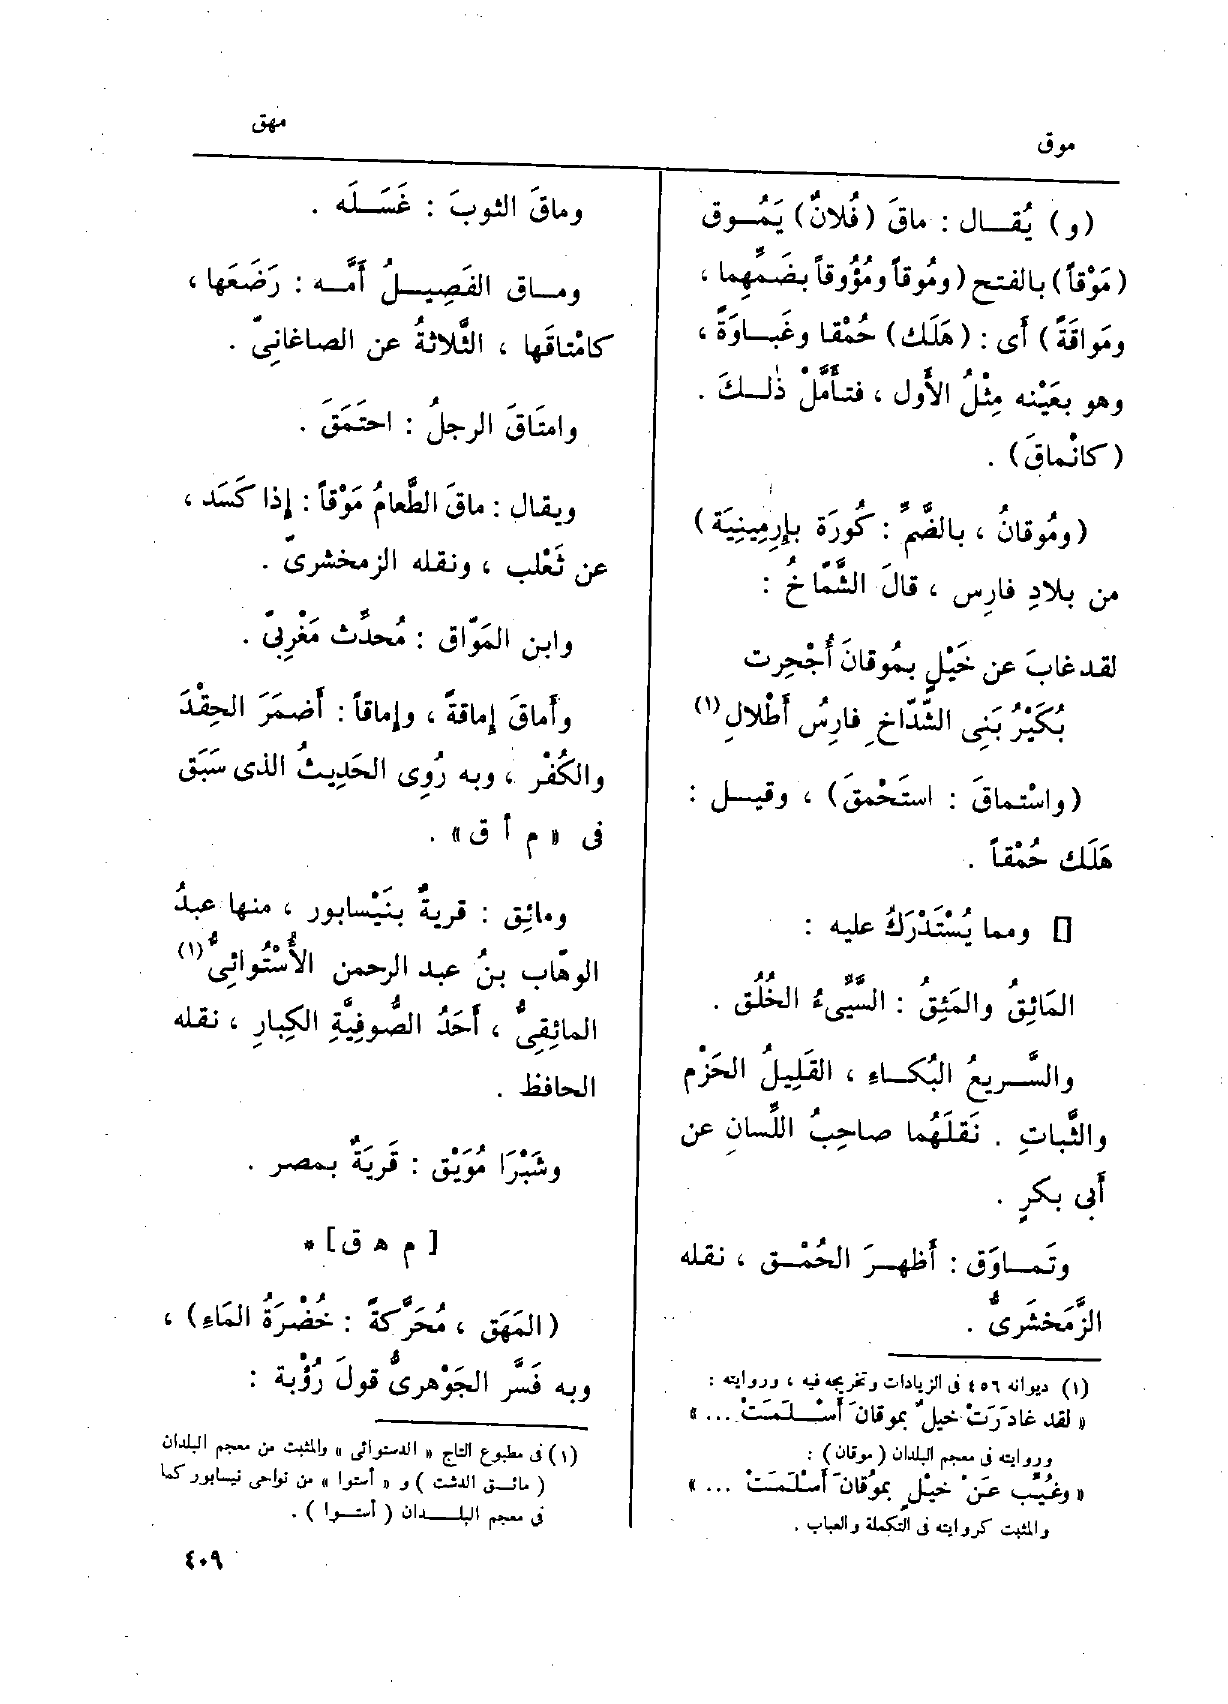 موق
مهق
(و) يُقــال : ماقَ (فُلانٌ) يَمُــوق
(مَوْقاً) بالفتح (ومُوقاً ومُؤُوقاً بضَمِّهِما ،
ومَواقَةً) أى : (هَلَك) حُمْقا وغَبــاوَةً ،
وهو بعَيْنه مِثْلُ الأَول ، فتأَمَّلْ ذٰلــكَ .
(كانْماقَ) .
(ومُوقانُ ، بالضَّمِّ : كُورَة بإِرمِينِيَة)
من بلادِ فارِس ، قالَ الشَّمّاخُ :
لقد غابَ عن خَيْلٍ بمُوقانَ أُجْحِرت
بُكَيْرُ بَنِى الشَّدّاخِ فارِسُ أَطْلالِ (١)
(واسْتماقَ : استَحْمقَ) ، وقيــل :
هَلَك حُمْقاً .
[] ومما يُسْتَدْرَكُ عليه :
المَائِقُ والمَئِقُ : السَّيِّىءُ الخُلُق .
والسَّــريعُ البُكــاءِ ، القَلِيلُ الحَزْم
والثَّباتِ . نَقلَهُما صاحِبُ اللِّسانِ عن
أَبى بكرٍ .
وتَمــاوَق : أَظهــرَ الحُمْــق ، نقله
الزَّمَخشَرىُّ .
(١) ديوانه ٤٥٦ فى الزيادات وتخريجه فيه ، وروايته :
« لقد غادَرَتْ خيلٌ بموقانَ أَسْــلَمَتْ ... »
وروايته فى معجم البلدان ( موقان ) :
« وغُيِّب عَنْ خيْلٍ بمُوقانَ أسْلَمَتْ ... »
والمثبت كروايته فى التكملة والعباب .
وماقَ الثوبَ : غَسَــلَه .
ومــاق الفَصِيــلُ أُمَّــه : رَضَعَها ،
كامْتاقَها ، الثَّلاثةُ عن الصاغانِىّ .
وامتَاقَ الرجلُ : احتَمَقَ .
ويقال : ماقَ الطَّعامُ مَوْقاً : إِذا كَسَد ،
عن ثَعْلب ، ونقله الزمخشرىّ .
وابن المَوّاق : مُحدِّث مَغْرِبىّ .
وأَماقَ إِماقةً ، وإِماقاً : أَضمَرَ الحِقْدَ
والكُفْر ، وبه رُوِى الحَدِيثُ الذى سَبَق
فى « م أ ق » .
ومائِق : قريةٌ بنَيْسابور ، منها عبدُ
الوهّاب بنُ عبد الرحمن الأُسْتُوائِىُّ (١)
المائِقِىُّ ، أَحَدُ الصُّوفِيَّةِ الكِبارِ ، نقله
الحافظ .
وشَبْرَا مُوَيْق : قَريَةٌ بمصر .
[ م ه ق ] *
(المَهَق ، مُحَرَّكةً : خُضْرَةُ المَاءِ) ،
وبه فَسَّر الجَوْهرىُّ قولَ رُؤْبة :
(١) فى مطبوع التاج « الدستوائى » والمثبت من معجم البلدان
( مائــق الدشت ) و « أستوا » من نواحى نيسابور كما
فى معجم البلــدان ( أستــوا ) .
٤٠٩